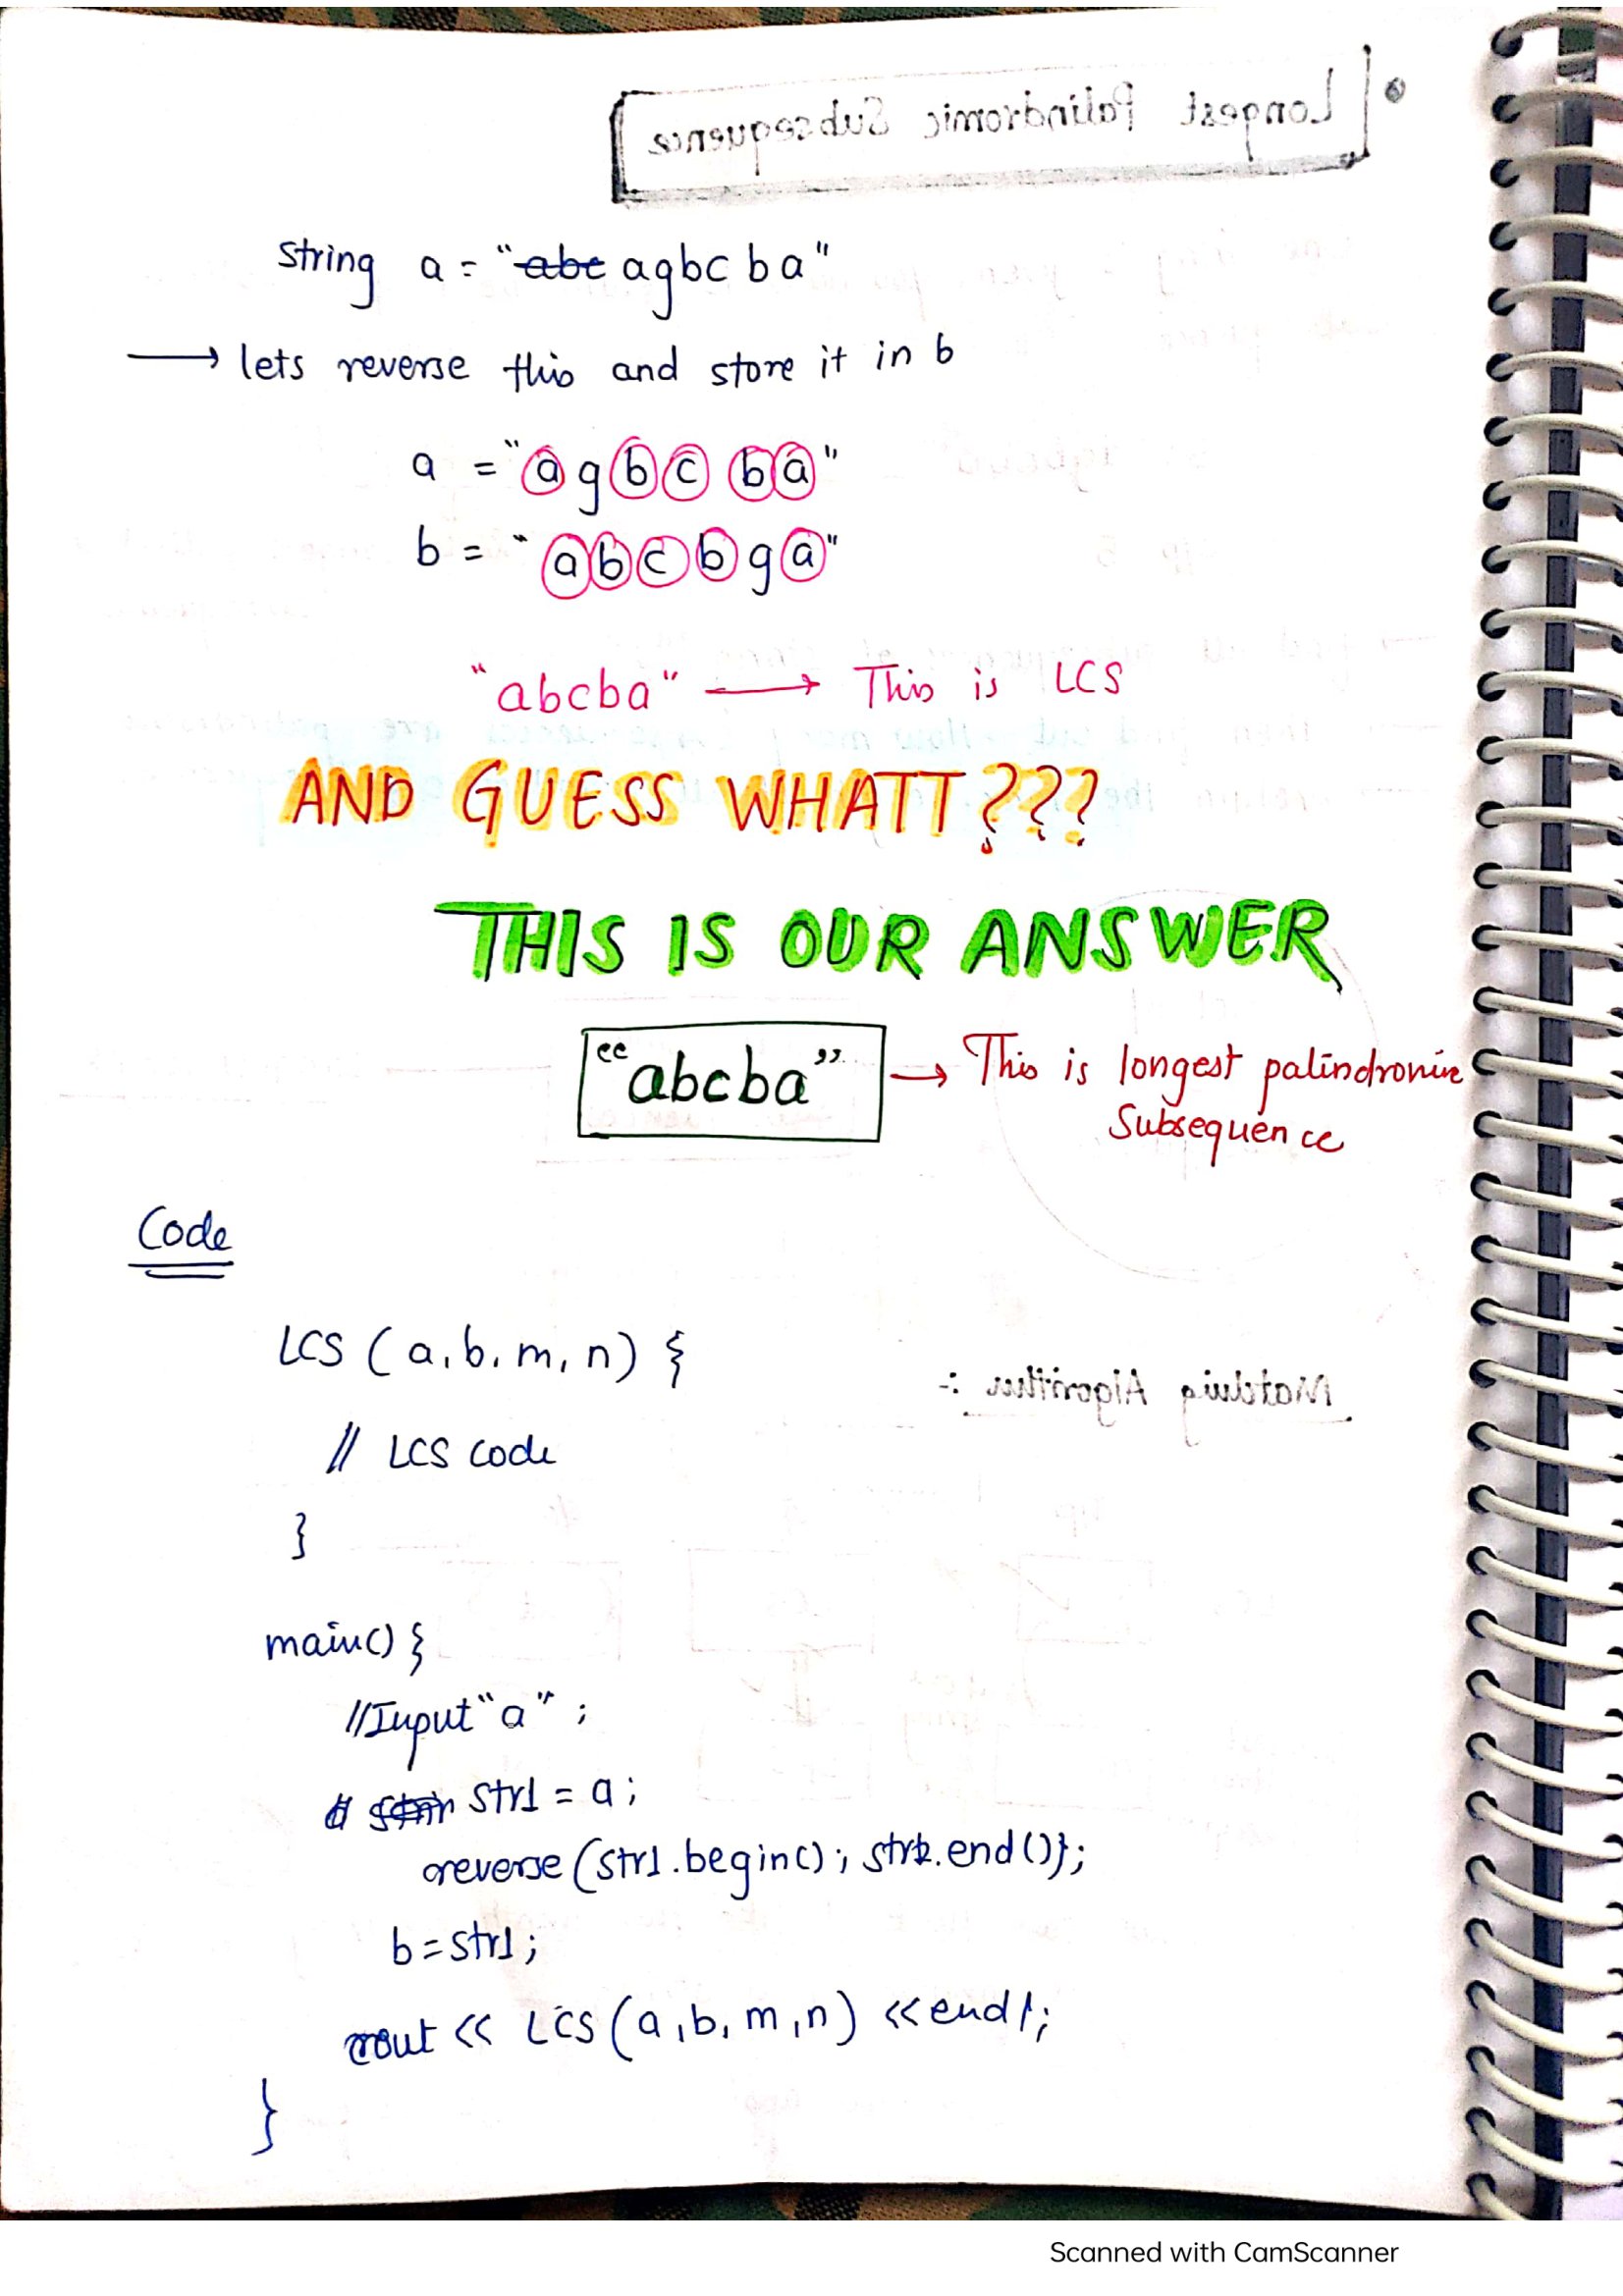 Longest Palindromic Subsequence
String a = "abc agbc ba"
→ lets reverse this and store it in b
a = "agbc ba"
b = "abcbga"
"abcba" → This is LCS
AND GUESS WHATT???
THIS IS OUR ANSWER
"abcba" → This is longest palindromic
Subsequence
Code
LCS (a, b, m, n) {
// LCS code
}
Matching Algorithm :-
main() {
//Input "a" ;
str1 = a;
reverse (str1.begin(); str1.end());
b = str1;
cout << LCS (a, b, m, n) << endl;
}
Scanned with CamScanner